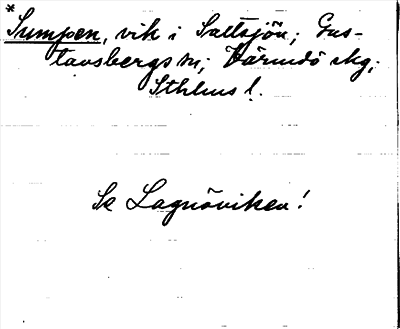 *Sumpen, vik i Saltsjön; Gus-
tavsbergs sn; Värmdö skg;
Sthlms l.
Se Lagnöviken!